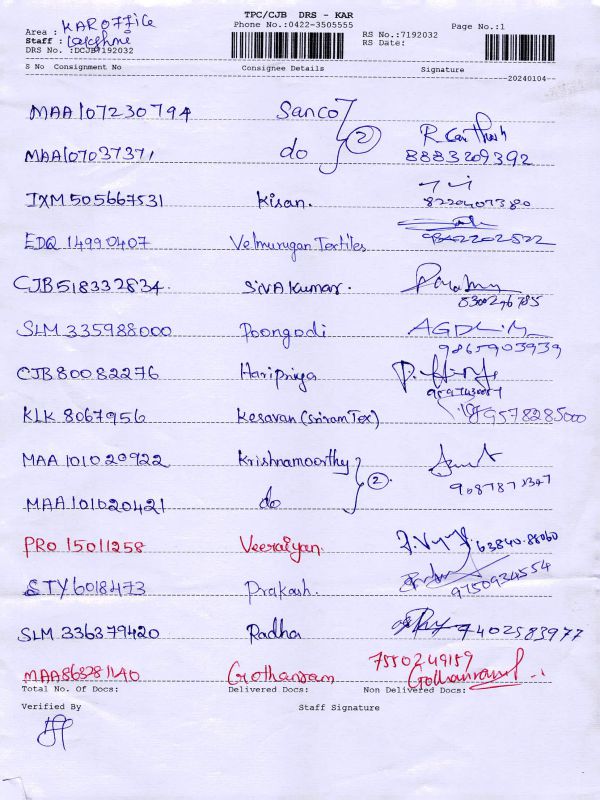 TPC/CJB DRS - KAR
Area : KAR OFFICE Phone No.:0422-3505555 Page No.:1
Staff : RS No.:7192032
DRS No. :DCJB7192032 RS Date:
S No Consignment No Consignee Details Signature
20240104
MAA107230794 Sanco
MAA107037371 do 2 8883209392
IXM505667531 Kisan. 8220407380
EDQ 14990407 Velmurugan Textiles
CJB518332834. SivAkumar.
SLM 335988000 Poongodi 9865903939
CJB80082276 Haripriya
KLK 8067956 Kesavan (Sriram Tex) 9578285000
MAA 101020922 Krishnamoorthy
MAA101020421 do 2
PRO 15011258 Veeraiyan. 63840-88060
STY6018473 Prakash. 9750934554
SLM 336379420 Radha 7402583977
MAA863781140 Gothanram 7550249159
Total No. Of Docs: Delivered Docs: Non Delivered Docs:
Verified By Staff Signature